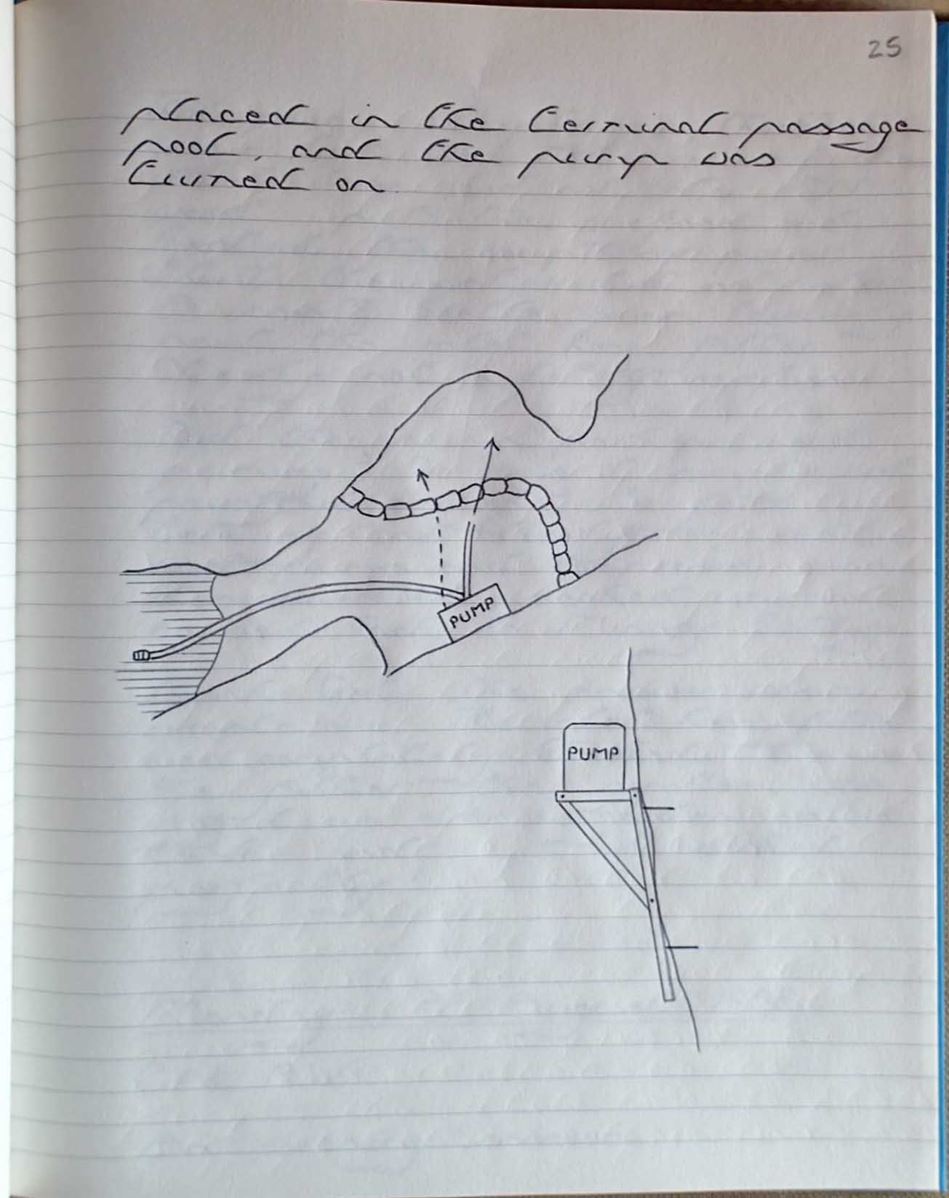 25
placed in the terminal passage
pool, and the pump was
turned on.
PUMP
PUMP